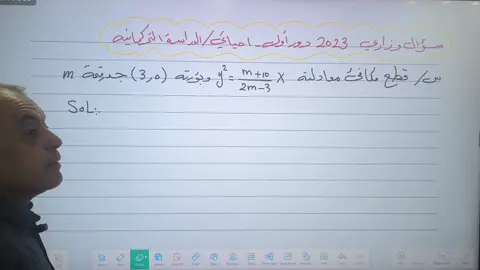 سؤال وزاري 2023 دور أول - احيائي / الدراسة
س/ قطع مكافئ معادلته y² = \frac{m+10}{2m-3} x وبؤرته (3,0) جد قيمة m
Sol: